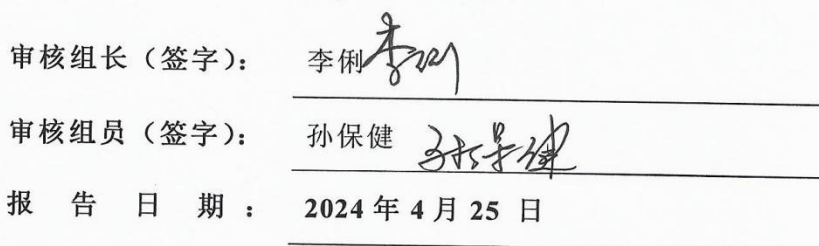 审核组长（签字）： 李俐 李俐
审核组员（签字）： 孙保健 孙保健
报 告 日 期 ： 2024 年 4 月 25 日